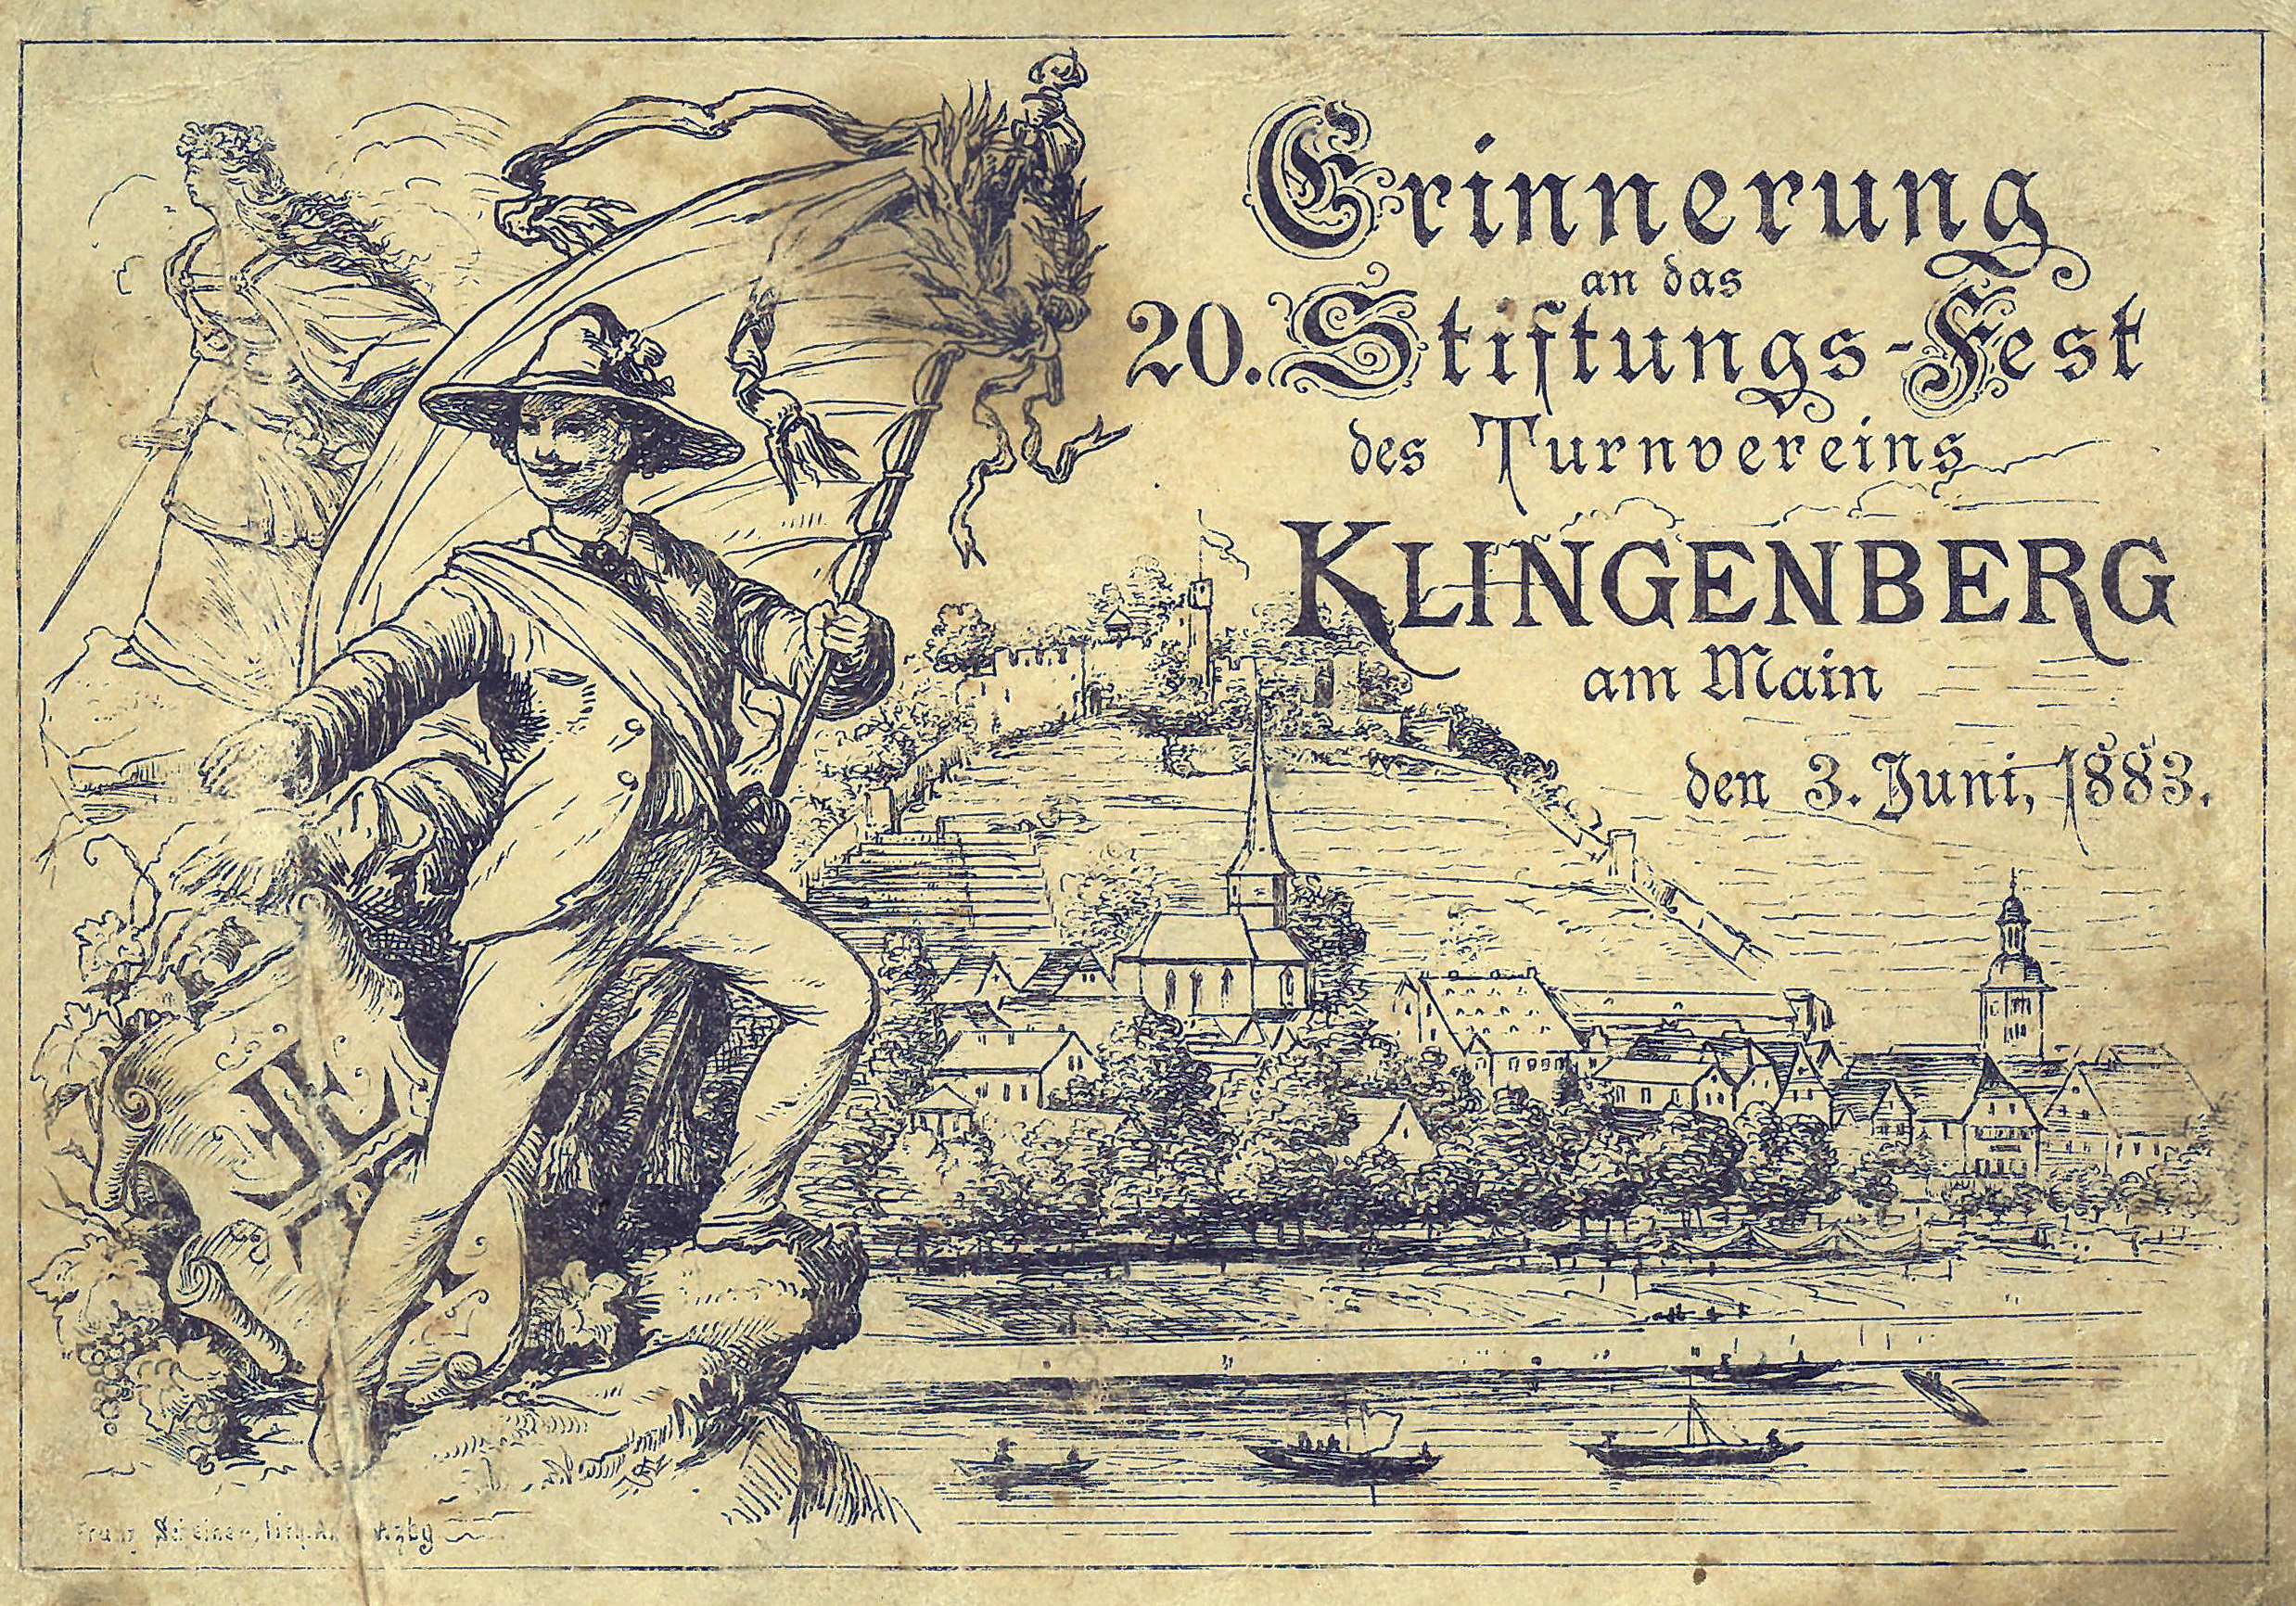 Erinnerung
an das
20. Stiftungs-Fest
des Turnvereins
KLINGENBERG
am Main
den 3. Juni, 1883.
Franz Scheiner, lith.